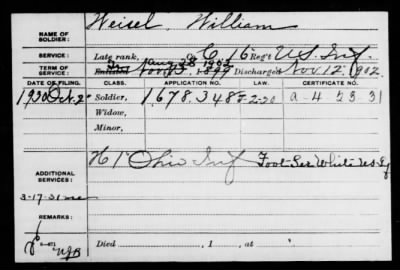 NAME OF SOLDIER: Weisel, William
SERVICE: Late rank, Co. C, 16 Reg't U.S. Inf.
TERM OF SERVICE: Enlisted Nov. 13, 1899 Discharged Nov. 12, 1902
DATE OF FILING. CLASS. APPLICATION NO. LAW. CERTIFICATE NO.
1930 Oct. 2 Soldier, 1,678,348 6-2-30 a-4 23 31
Widow,
Minor,
ADDITIONAL SERVICES: Ohio Inf
3-17-31
REMARKS:
Died , 1 , at